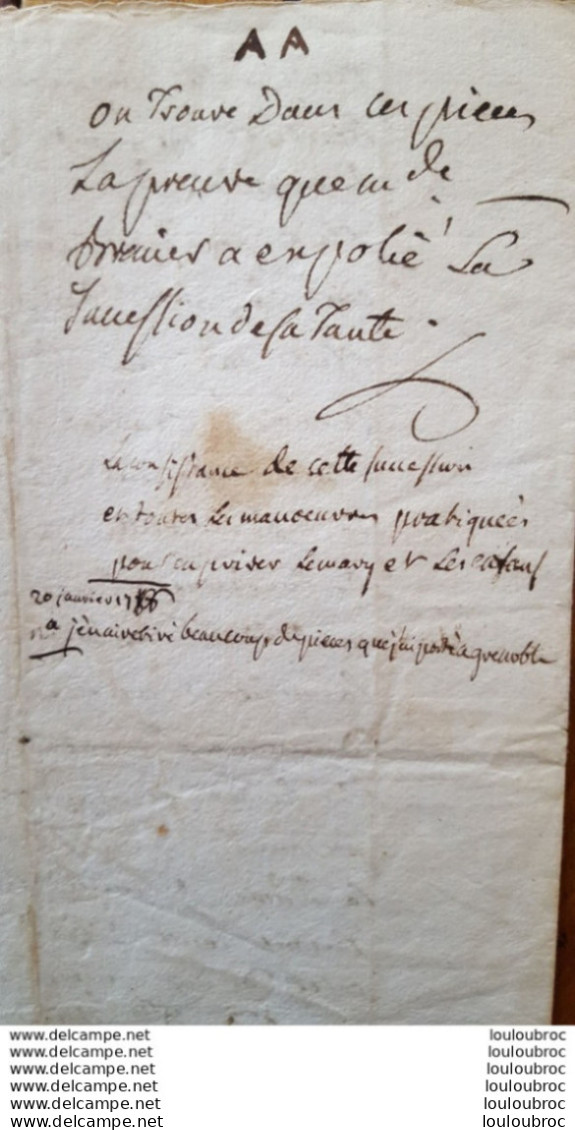 AA
on Trouve Dans ces pieces
La preuve que m de
a expolié La
succession de sa Tante.
La consistance de cette succession
et toutes les manoeuvres pratiquées
pour en priver Le mary et Les enfans
20 janvier 17
na j'en ai retiré beaucoup de pieces que j'ai porté a grenoble
www.delcampe.net louloubroc
www.delcampe.net louloubroc
www.delcampe.net louloubroc
www.delcampe.net louloubroc
www.delcampe.net louloubroc
www.delcampe.net louloubroc